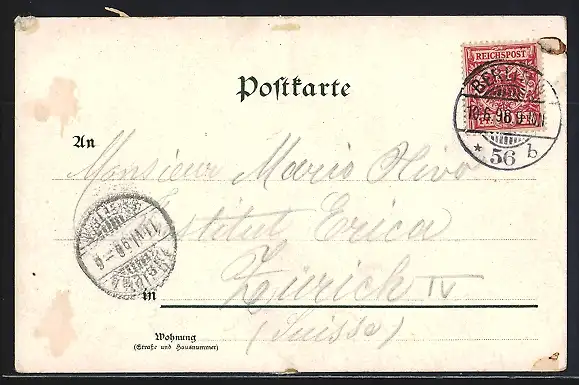 REICHSPOST
BERLIN
10.6.98.9-10N
* 56 b
Postkarte
An
Monsieur Mario Olivo
Institut Erica
in Zürich IV
(Suisse)
Wohnung
(Straße und Hausnummer)